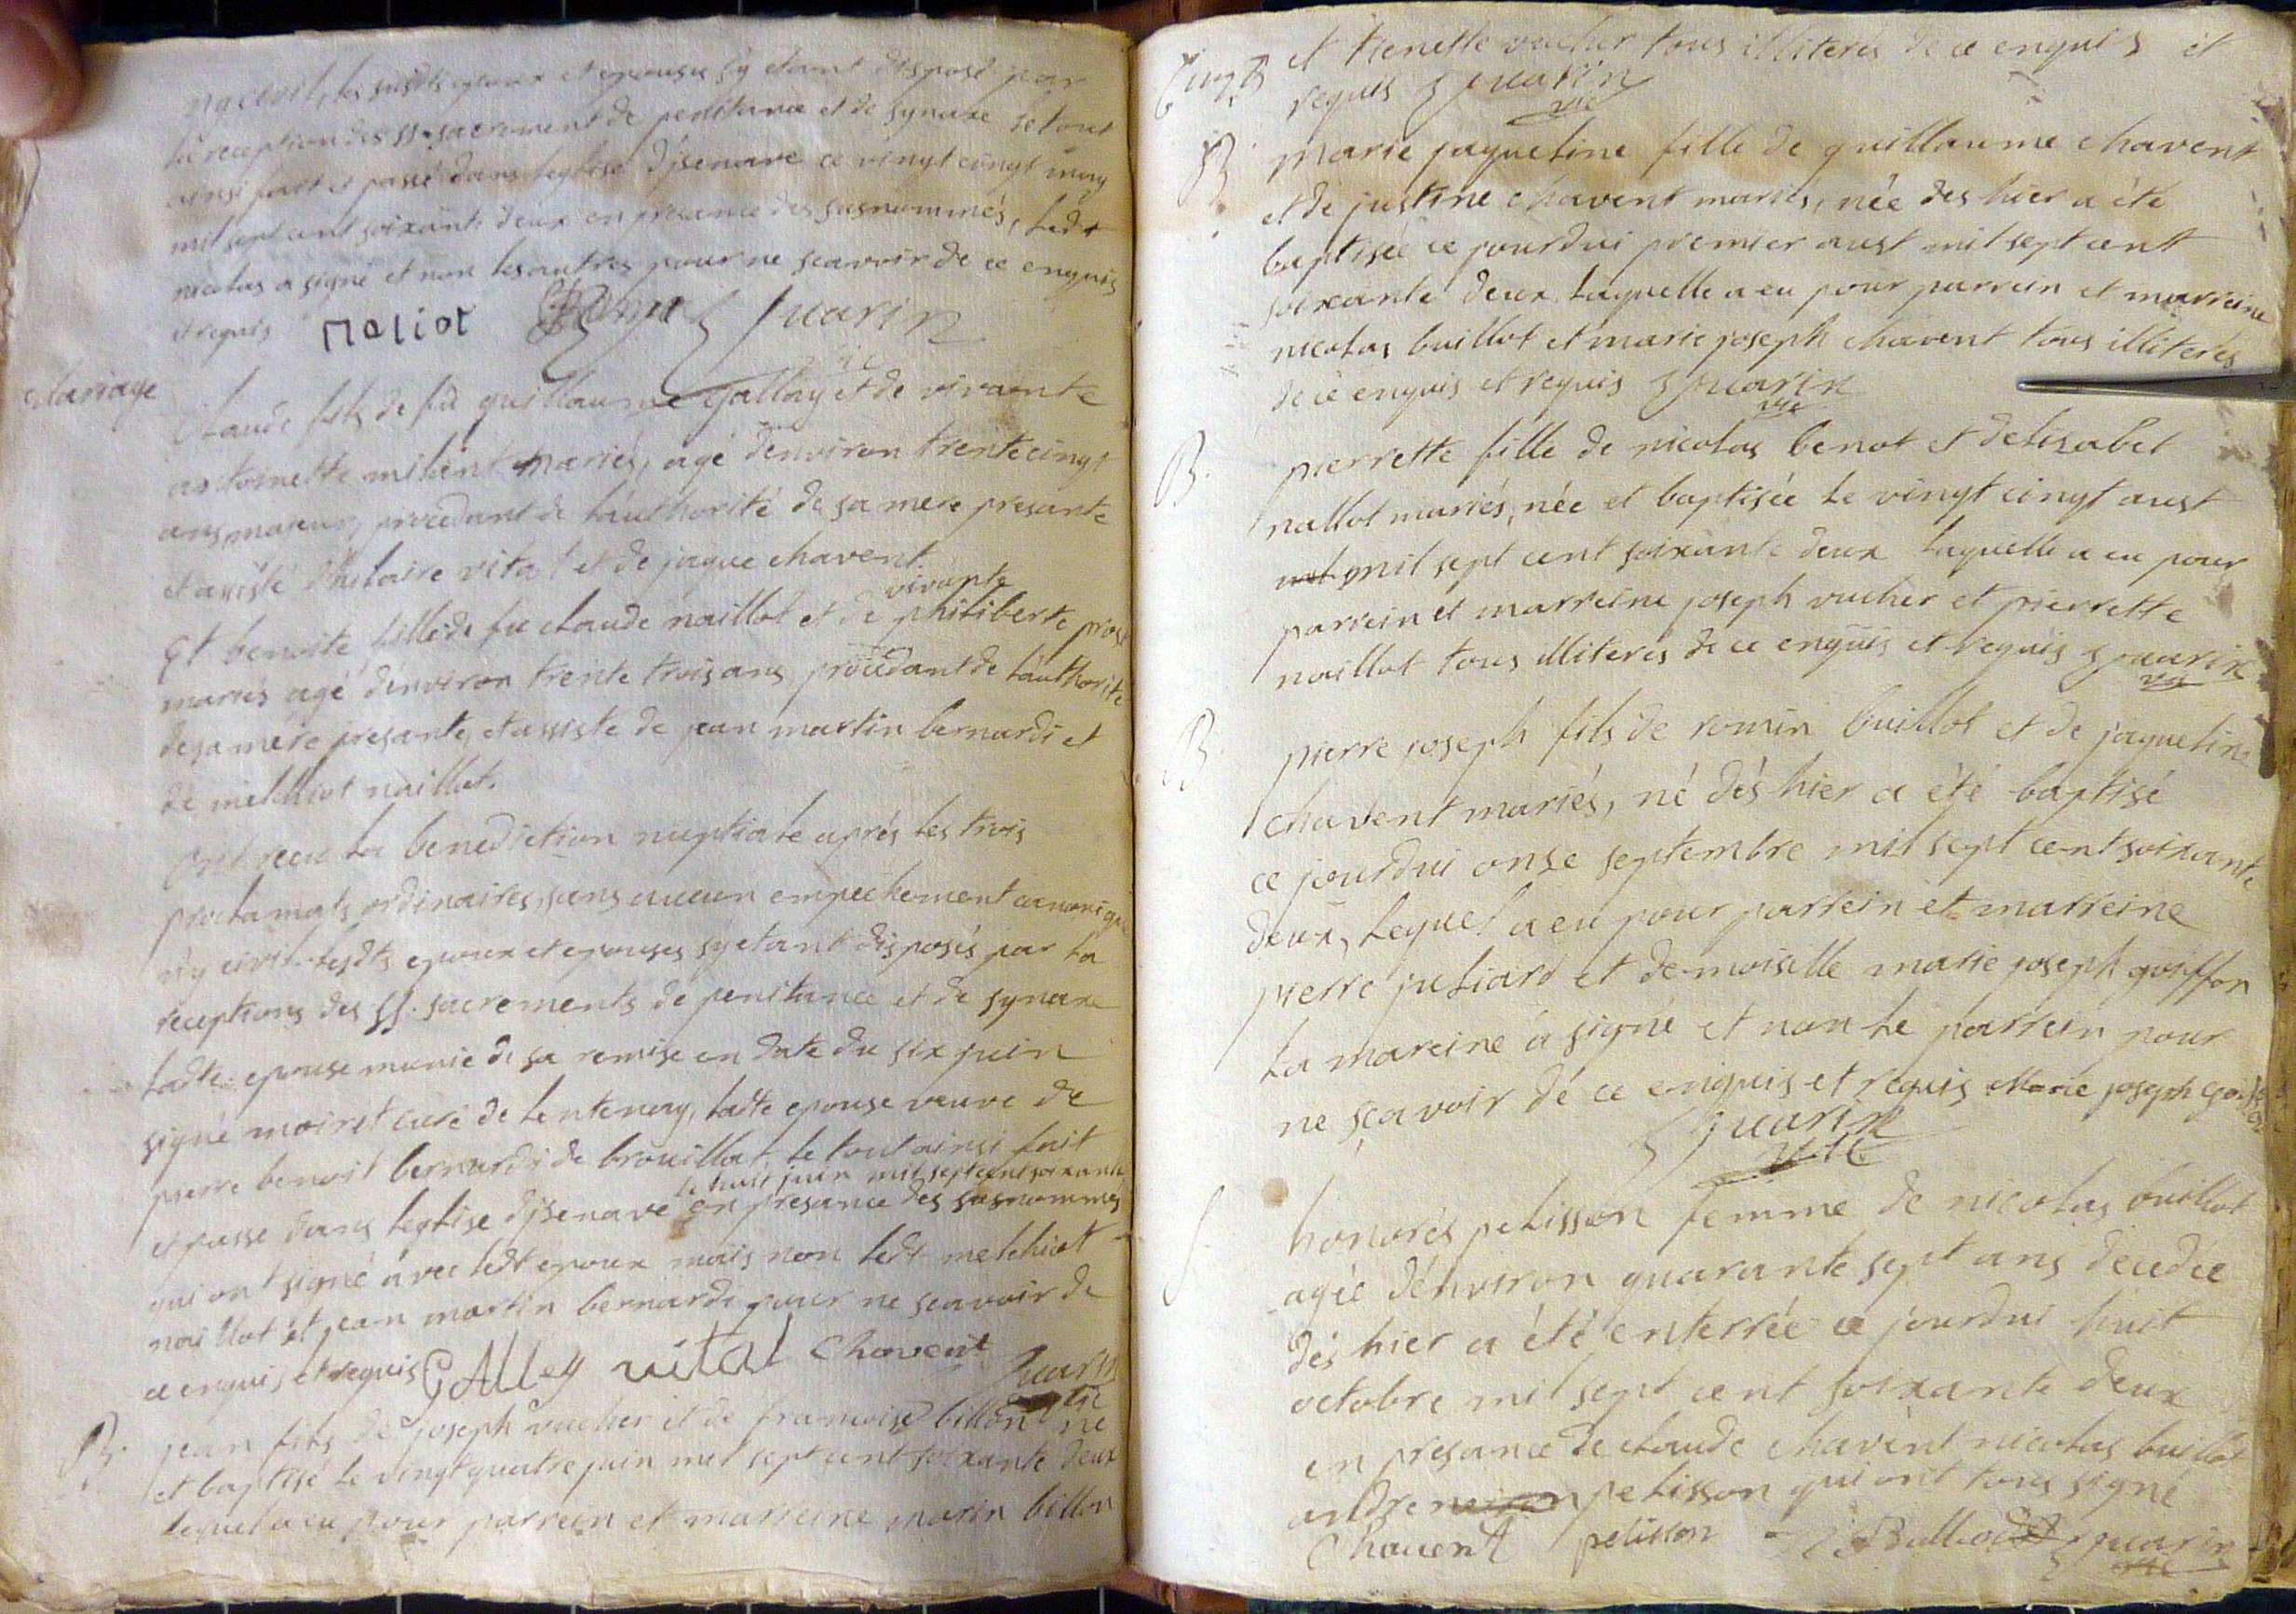 ny civil, les susdits epoux et epouses sy etant disposé par
la reception des SS. sacrement de penitance et de synaxe le tout
ainsi fait et passé dans leglise disenave ce vingt cinqt may
mil sept cent soixante deux en presance des susnommés, ledt
nicolas a signé et non les autres pour ne scavoir de ce enquis
et requis naliot Juarin
vic
Mariage
Claude fils de fu guillaume Gallay et de vivante
antoinette milant mariés, agé denviron trente cinqt
ans majeur, procedant de lauthorité de sa mere presante
et assisté dhilaire vital et de jaque chavent.
vivante
Et benoite fille de fu claude naillot et de philiberte
mariés agé denviron trente trois ans procedant de lauthorité
de sa mere presante, et assiste de jean martin bernardi et
de melchiot naillot.
Ont receu la benediction nuptiale aprés les trois
proclamats ordinaires, sans aucun empechement canonique
ny civil. lesdts epoux et epouses sy etant disposés par la
receptions des SS. sacrements de penitance et de synaxe
ladte epouse munie de sa remise en date du six juin
signé moiret curé de lentenay, ladte epouse veuve de
pierre benoit bernardi de brouillat, le tout ainsi fait
le huit juin mil sept cent soixante
et passe dans leglise disenave en presance des susnommés
qui ont signé avec ledt epoux mais non ledt melchiot
naillot et jean martin bernardi pour ne scavoir de
ce enquis et requis GAlley vital Chavent Juarin
vic
B. jean fils de joseph vucher et de francoise billon né
et baptisé le vingt quatre juin mil sept cent soixante deux
lequel a eu pour parrein et marreine marin billon
et pienette vucher tous illiterés de ce enquis et
requis Juarin
vic
B. marie jaqueline fille de guillaume chavent
et de justine chavent mariés, née des hier a été
baptisée ce jourdui premier aust mil sept cent
soixante deux laquelle a eu pour parrein et marreine
nicolas buillot et marie joseph chavent tous illiterés
de ce enquis et requis Juarin
vic
B. pierrette fille de nicolas benot et delisabet
nallot mariés, née et baptisée le vingt cinqt aust
mil sept cent soixante deux laquelle a eu pour
parrein et marreine joseph vucher et pierrette
naillot tous illiterés de ce enquis et requis Juarin
vic
B. pierre joseph fils de romin buillot et de jaqueline
chavent mariés, né dés hier a été baptisé
ce jourdui onse septembre mil sept cent soixante
deux, lequel a eu pour parrein et marreine
pierre juliard et demoiselle marie joseph goiffon
la mareine a signé et non le parrein pour
ne scavoir dé ce enquis et requis Marie joseph goiffon
Juarin
vic
honorés pelisson femme de nicolas buillot
agée denviron quarante sept ans decedée
dés hier a été enterrée ce jourdui huit
octobre mil sept cent soixante deux
en presance de claude chavent nicolas buillot
andre pelisson qui ont tous signé
Chavent pelisson Bulliod Juarin
vic